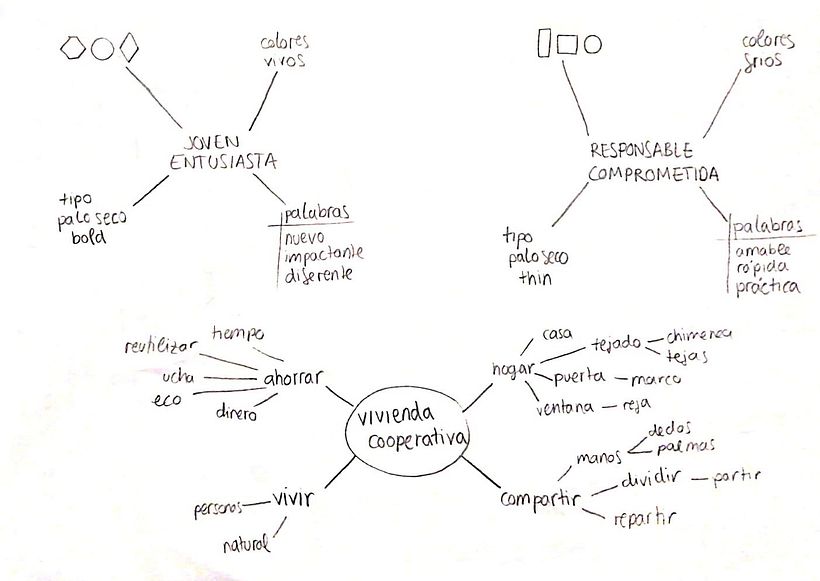 colores
vivos
JOVEN
ENTUSIASTA
tipo
palo seco
bold
palabras
nuevo
impactante
diferente
colores
fríos
RESPONSABLE
COMPROMETIDA
tipo
palo seco
thin
palabras
amable
rápida
práctica
vivienda
cooperativa
ahorrar
tiempo
reutilizar
ucha
eco
dinero
hogar
casa
tejado
chimenea
tejas
puerta
marco
ventana
reja
vivir
personas
natural
compartir
manos
dedos
palmas
dividir
partir
repartir